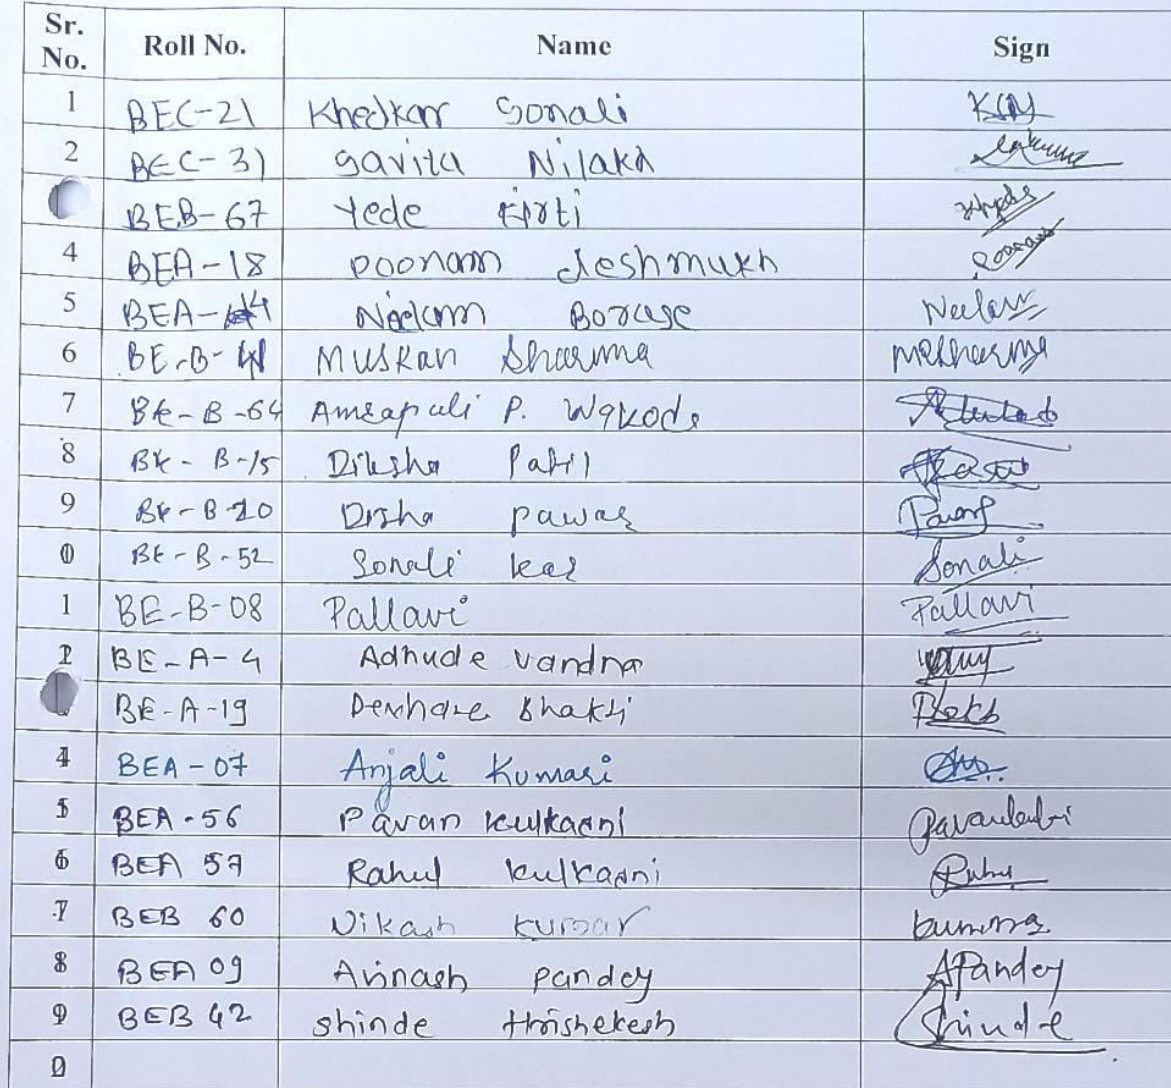 Sr. No. Roll No. Name Sign
1 BEC-21 Khedkar Sonali
2 BEC-31 Savita Nilakh
BEB-67 Yede Kirti
4 BEA-18 Poonam deshmukh Poonam
5 BEA- Neelam Borase Neelam
6 BE-B-41 Muskan Sharma MSharma
7 BE-B-64 Amrapali P. Wakode
8 BE-B-15 Diksha Patil
9 BE-B-20 Disha pawar Pawar
0 BE-B-52 Sonali kar Sonali
1 BE-B-08 Pallavi Pallavi
2 BE-A-4 Adhude vandna
BE-A-19 Denhare Bhakti
4 BEA-07 Anjali Kumari
5 BEA-56 Pavan kulkarni
6 BEA 57 Rahul kulkarni
7 BEB 60 Vikash kumar kumar
8 BEA 09 Avinash pandey APandey
9 BEB 42 shinde Hrishekesh Shinde
0